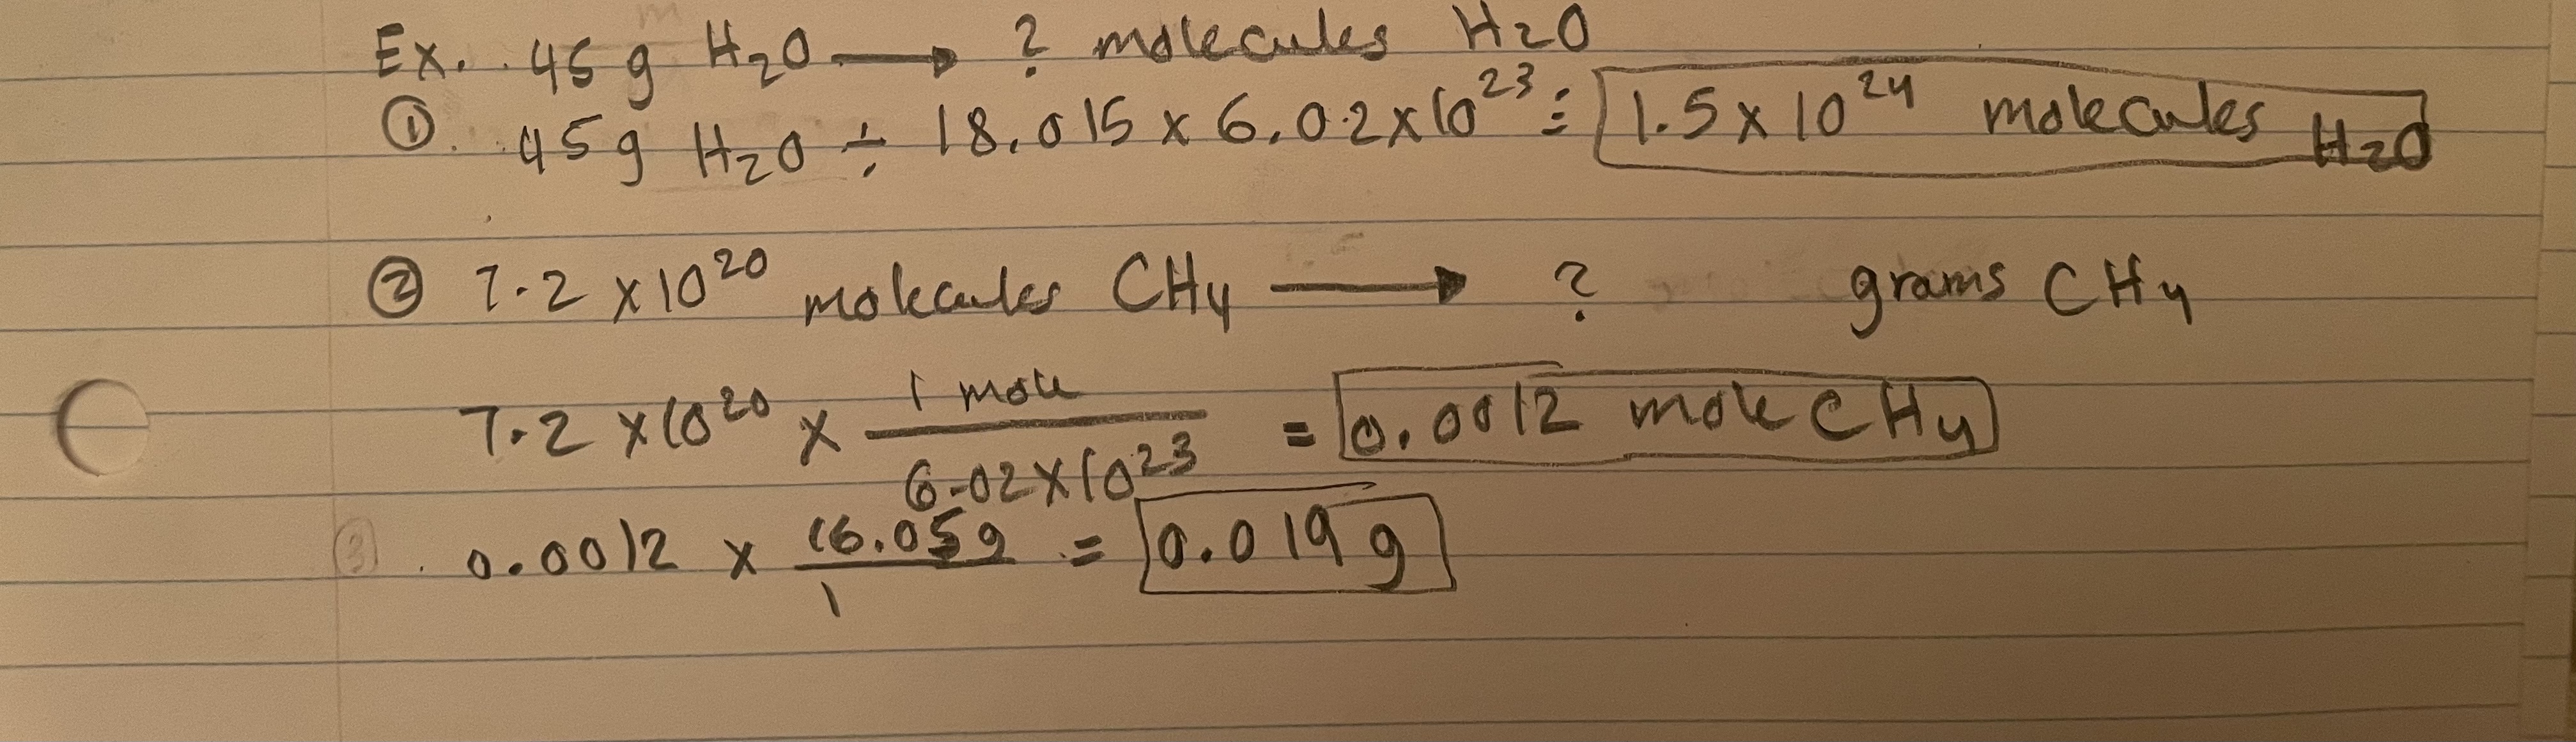 Ex. 45 g H₂O → ? molecules H₂O
① 45 g H₂O ÷ 18.015 x 6.02 x 10²³ = 1.5 x 10²⁴ molecules H₂O
② 7.2 x 10²⁰ molecules CH₄ → ? grams CH₄
7.2 x 10²⁰ x 1 mole / 6.02 x 10²³ = 0.0012 mole CH₄
③ 0.0012 x 16.05g / 1 = 0.019 g